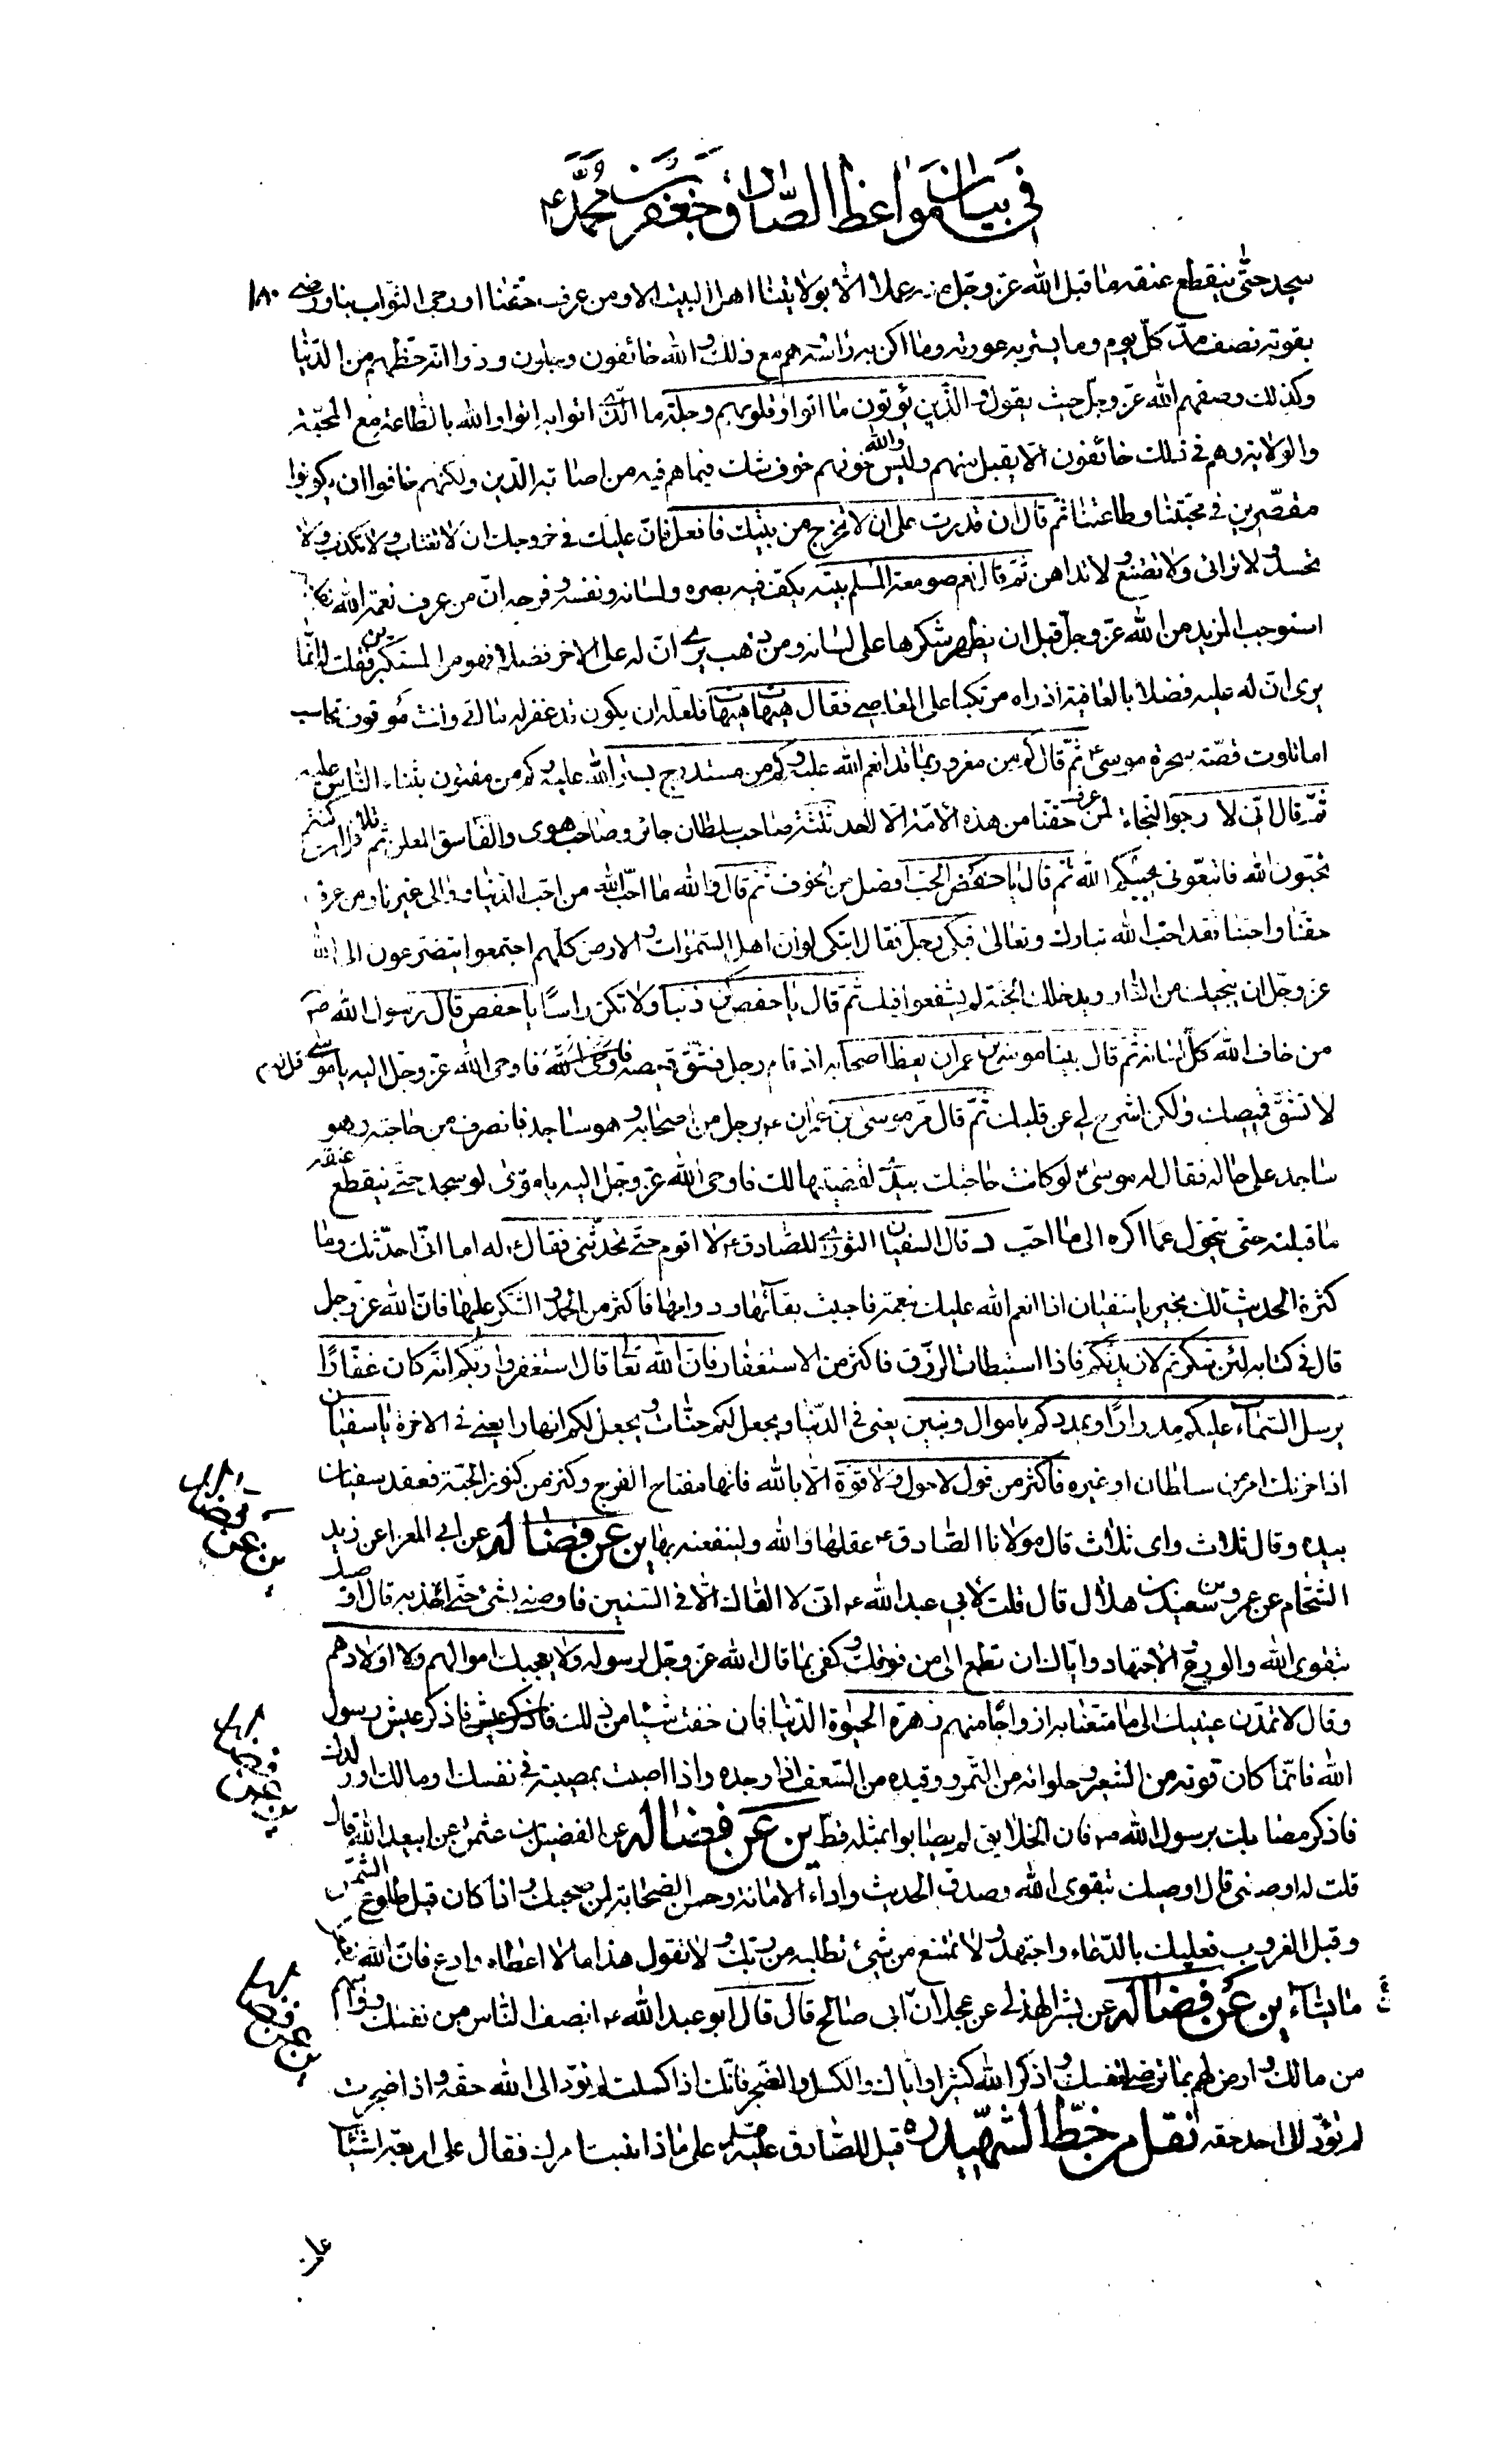 في بيان مواعظ الصادق جعفر بن محمد ع
سجد حتى ينقطع عنقه ما قبل الله عز وجل منه عملا الا بولايتنا اهل البيت الا ومن عرف حقنا او رجى الثواب بنا ورضي ١٨٠
بقوته نصف مد كل يوم وما يستر به عورته وما اكن به راسه وهم مع ذلك والله خائفون وجلون ودوا انه حظهم من الدنيا
وكذلك وصفهم الله عز وجل حيث يقول والذين يؤتون ما اتوا وقلوبهم وجلة ما الذي اتوا به اتوا والله بالطاعة مع المحبة
والولاية وهم في ذلك خائفون الا يقبل منهم وليس والله خوفهم خوف شك فيما هم فيه من اصابة الدين ولكنهم خافوا ان يكونوا
مقصرين في محبتنا وطاعتنا ثم قال ان قدرت على ان لا تخرج من بيتك فافعل فان عليك في خروجك ان لا تغتاب ولا تكذب ولا
تحسد ولا ترائى ولا تتصنع ولا تداهن ثم قال نعم صومعة المسلم بيته يكف فيه بصره ولسانه ونفسه وفرجه ان من عرف نعمة الله بقلبه
استوجب المزيد من الله عز وجل قبل ان يظهر شكرها على لسانه ومن ذهب يرى ان له على الاخر فضلا فهو من المستكبرين فقلت له انما
يرى ان له عليه فضلا بالعافية اذ راه مرتكبا على المعاصي فقال هيهات هيهات فلعله ان يكون قد غفر له ما اتى وانت موقوف تحاسب
اما تلوت قصة سحرة موسى ع ثم قال كم من مغرور بما قد انعم الله عليه وكم من مستدرج بستر الله عليه وكم من مفتون بثناء الناس عليه
ثم قال انى لا رجو النجاة لمن عرف حقنا من هذه الامة الا لاحد ثلثة صاحب سلطان جائر وصاحب هوى والفاسق المعلن ثم تلا قل ان كنتم
تحبون الله فاتبعونى يحببكم الله ثم قال يا حفص الحب افضل من الخوف ثم قال والله ما احب الله من احب الدنيا ووالى غيرنا ومن عرف
حقنا واحبنا فقد احب الله تبارك وتعالى فبكى رجل فقال اتبكى لو ان اهل السموات والارض كلهم اجتمعوا يتضرعون الى الله
عز وجل ان ينجيك من النار ويدخلك الجنة لم يشفعوا فيك ثم قال يا حفص كن ذنبا ولا تكن راسا يا حفص قال رسول الله ص
من خاف الله كل لسانه ثم قال بينا موسى بن عمران يعظ اصحابه اذ قام رجل فشق قميصه فاوحى الله فاوحى الله عز وجل اليه يا موسى قل له
لا تشق قميصك ولكن اشرح لي عن قلبك ثم قال مر موسى بن عمران ع برجل من اصحابه وهو ساجد فانصرف من حاجته وهو
ساجد على حاله فقال له موسى ع لو كانت حاجتك بيدى لقضيتها لك فاوحى الله عز وجل اليه يا موسى لو سجد حتى ينقطع عنقه
ما قبلته حتى يتحول عما اكره الى ما احب قال السفيان الثورى للصادق ع لا اقوم حتى تحدثنى فقال ع له اما انى احدثك وما
كثرة الحديث لك بخير يا سفيان اذا انعم الله عليك بنعمة فاحببت بقائها ودوامها فاكثر من الحمد والشكر عليها فان الله عز وجل
قال في كتابه لئن شكرتم لازيدنكم فاذا استبطات الرزق فاكثر من الاستغفار فان الله تعالى قال استغفروا ربكم انه كان غفارا
يرسل السماء عليكم مدرارا ويمددكم باموال وبنين يعنى في الدنيا ويجعل لكم جنات ويجعل لكم انهارا يعني في الاخرة يا سفيان
اذا حزنك امر من سلطان او غيره فاكثر من قول لا حول ولا قوة الا بالله فانها مفتاح الفرج وكنز من كنوز الجنة فعقد سفيان
بيده وقال ثلاث واى ثلاث قال مولانا الصادق ع عقلها والله ولينفعنه بها ين عن فضاله عن ابي المعزا عن زيد
الشحام عن عمرو بن سعيد بن هلال قال قلت لابي عبد الله ع انى لا القاك الا في السنين فاوصنى بشئ حتى اخذ به قال اوصيك
بتقوى الله والورع والاجتهاد واياك ان تطمح الى من فوقك وكفى بما قال الله عز وجل لرسوله ولا يعجبك اموالهم ولا اولادهم
وقال لا تمدن عينيك الى ما متعنا به ازواجا منهم زهرة الحيوة الدنيا فان خفت شيئا من ذلك فاذكر عيش فاذكر عيش رسول
الله فانما كان قوته من الشعير وحلوائه من التمر ووقيده من السعف اذا وجده واذا اصبت بمصيبة في نفسك او مالك او ولدك
فاذكر مصابك برسول الله ص فان الخلايق لم يصابوا بمثله قط ين عن فضاله عن الفضيل بن عثمن عن ابيعبد الله قال
قلت له اوصنى قال اوصيك بتقوى الله وصدق الحديث واداء الامانة وحسن الصحابة لمن صحبك واذا كان قبل طلوع الشمس
وقبل الغروب فعليك بالدعاء واجتهد ولا تمتنع من شئ تطلبه من ربك ولا تقول هذا ما لا اعطاه وادع فان الله يفعل
ما يشاء ين عن فضاله عن بشر الهذلي عن عجلان ابى صالح قال قال ابو عبد الله ع انصف الناس من نفسك وواسهم
من مالك وارض لهم بما ترضى لنفسك واذكر الله كثيرا واياك والكسل والضجر فانك اذا كسلت لم تؤد الى الله حقه واذا ضجرت
لم تؤد الى احد حقه نقل من خط الشهيد ره قيل للصادق عليه السلم على ماذا بنيت امرك فقال على اربعة اشياء
علمت